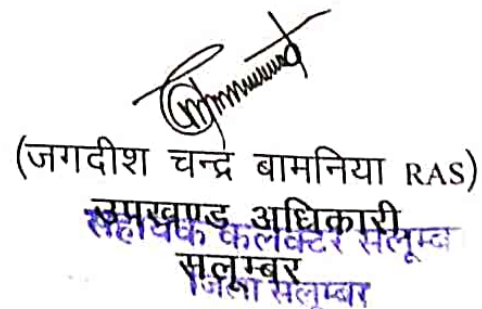 (जगदीश चन्द्र बामनिया RAS)
उपखण्ड अधिकारी
सहायक कलक्टर सलूम्ब
सलूम्बर
जिला सलूम्बर